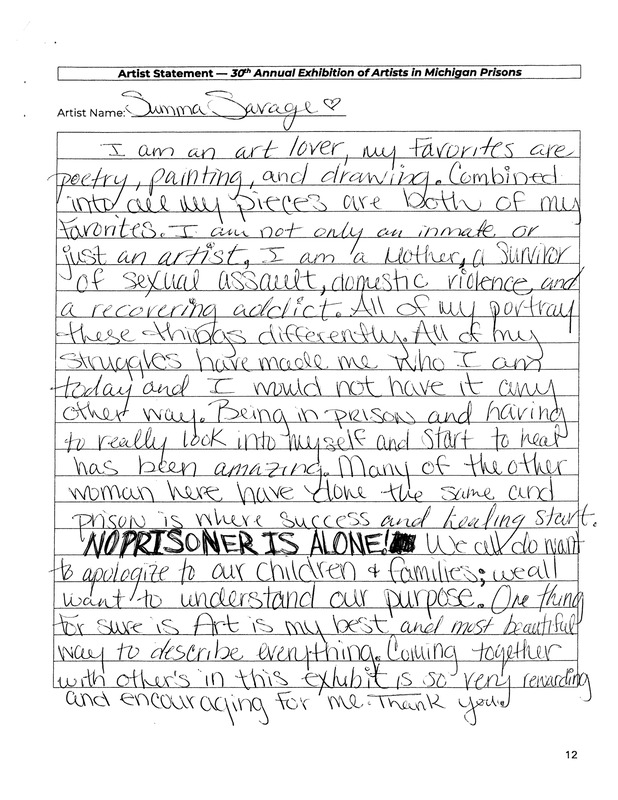 Artist Statement — 30th Annual Exhibition of Artists in Michigan Prisons
Artist Name: Summa Savage ♡
I am an art lover, my favorites are
poetry, painting, and drawing. Combined
into all my pieces are both of my
favorites. I am not only an inmate, or
just an artist, I am a Mother, a Survivor
of sexual assault, domestic violence, and
a recovering addict. All of my portray
these things differently. All of my
struggles have made me who I am
today and I would not have it any
other way. Being in prison and having
to really look into myself and start to heal
has been amazing. Many of the other
woman here have done the same and
prison is where success and healing start.
NO PRISONER IS ALONE! We all do want
to apologize to our children & families; we all
want to understand our purpose. One thing
for sure is Art is my best and most beautiful
way to describe everything. Coming together
with other's in this exhibit is so very rewarding
and encouraging for me. Thank you.
12